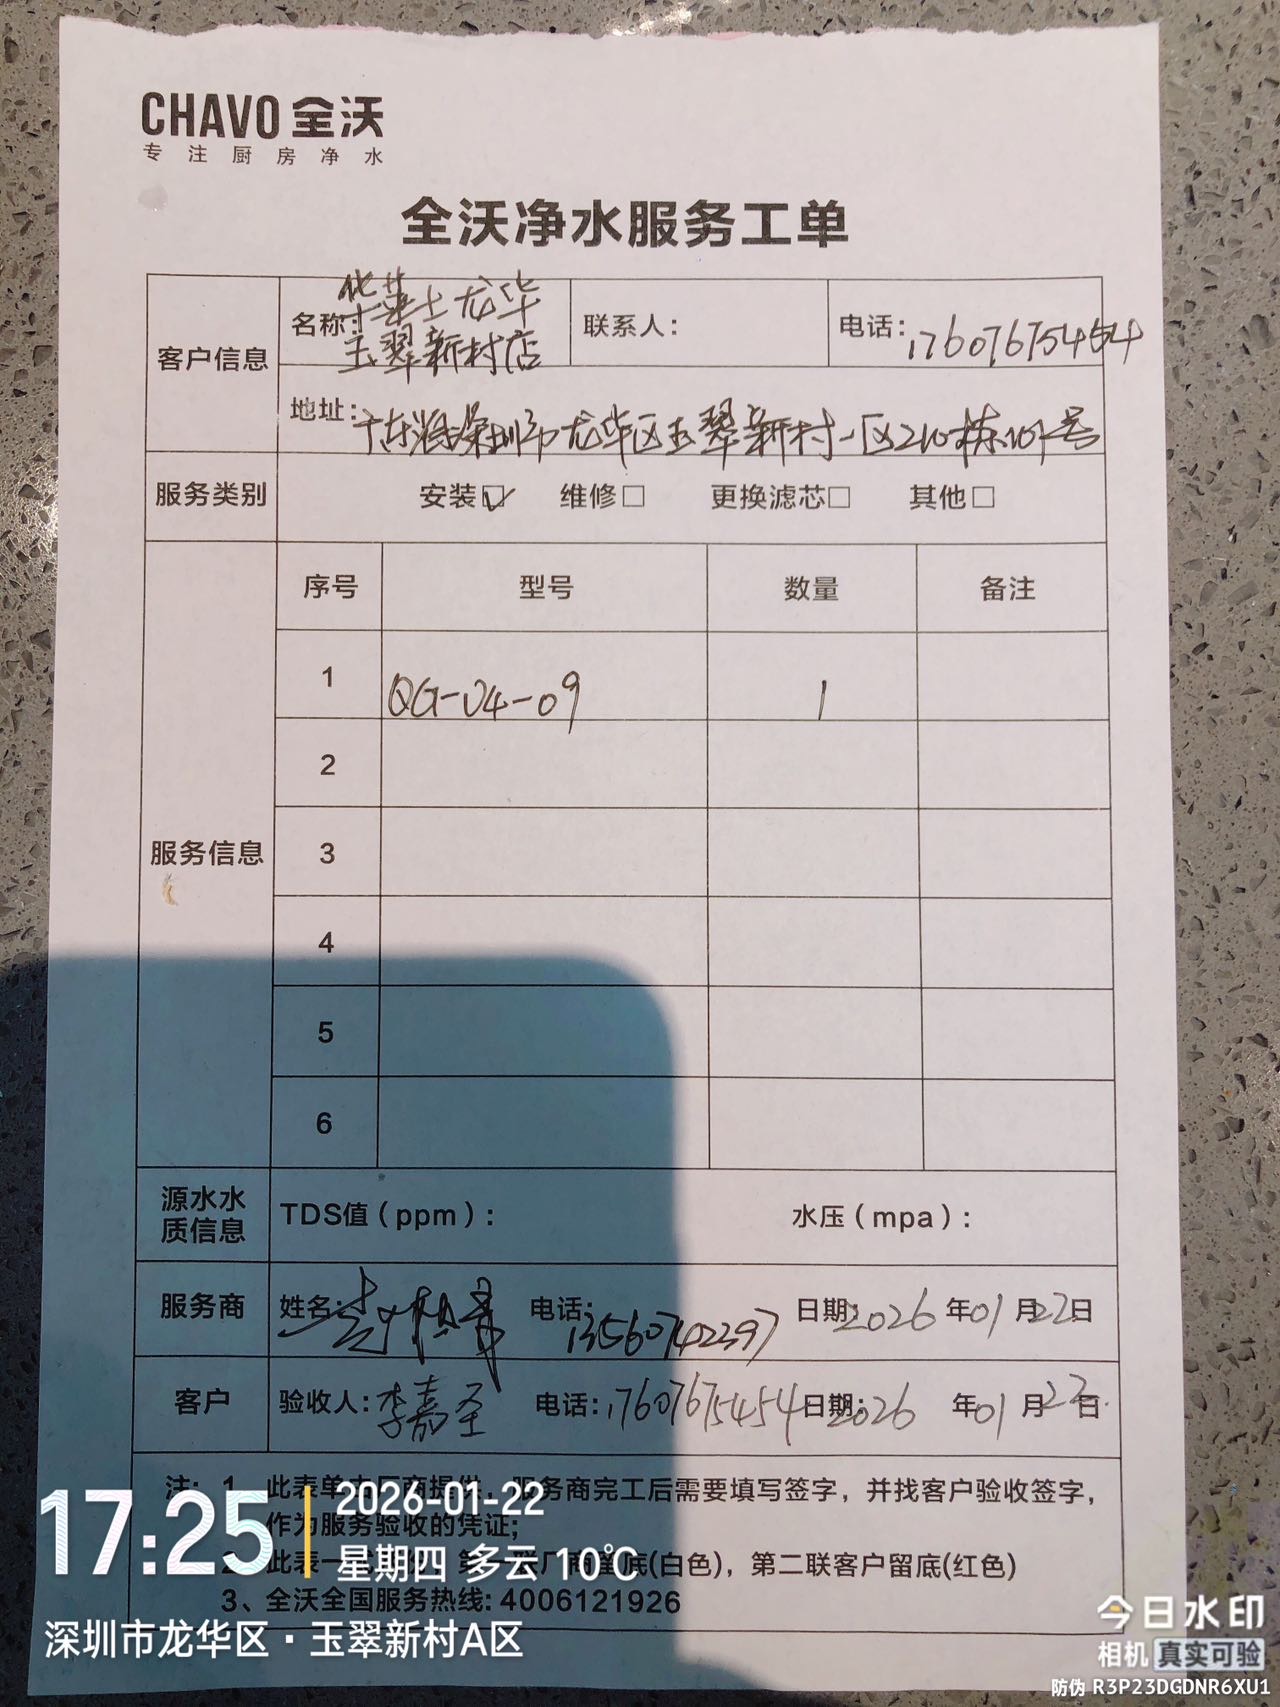 CHAVO 全沃
专注厨房净水
全沃净水服务工单
客户信息
名称：华莱士龙华
玉翠新村店
联系人：
电话：17607675454
地址：广东省深圳市龙华区玉翠新村一区210栋101号
服务类别
安装☑ 维修□ 更换滤芯□ 其他□
服务信息
序号 型号 数量 备注
1 QG-U4-09 1
2
3
4
5
6
源水水
质信息
TDS值（ppm）： 水压（mpa）：
服务商 姓名： 电话：13560742397 日期：2026年01月22日
客户 验收人：李嘉圣 电话：17607675454 日期：2026年01月22日
注：1、此表单由厂商提供，服务商完工后需要填写签字，并找客户验收签字，
作为服务验收的凭证；
2、此表一式 第一联厂商留底(白色)，第二联客户留底(红色)
3、全沃全国服务热线：4006121926
17:25
2026-01-22
星期四 多云 10℃
深圳市龙华区·玉翠新村A区
今日水印
相机 真实可验
防伪 R3P23DGDNR6XU1